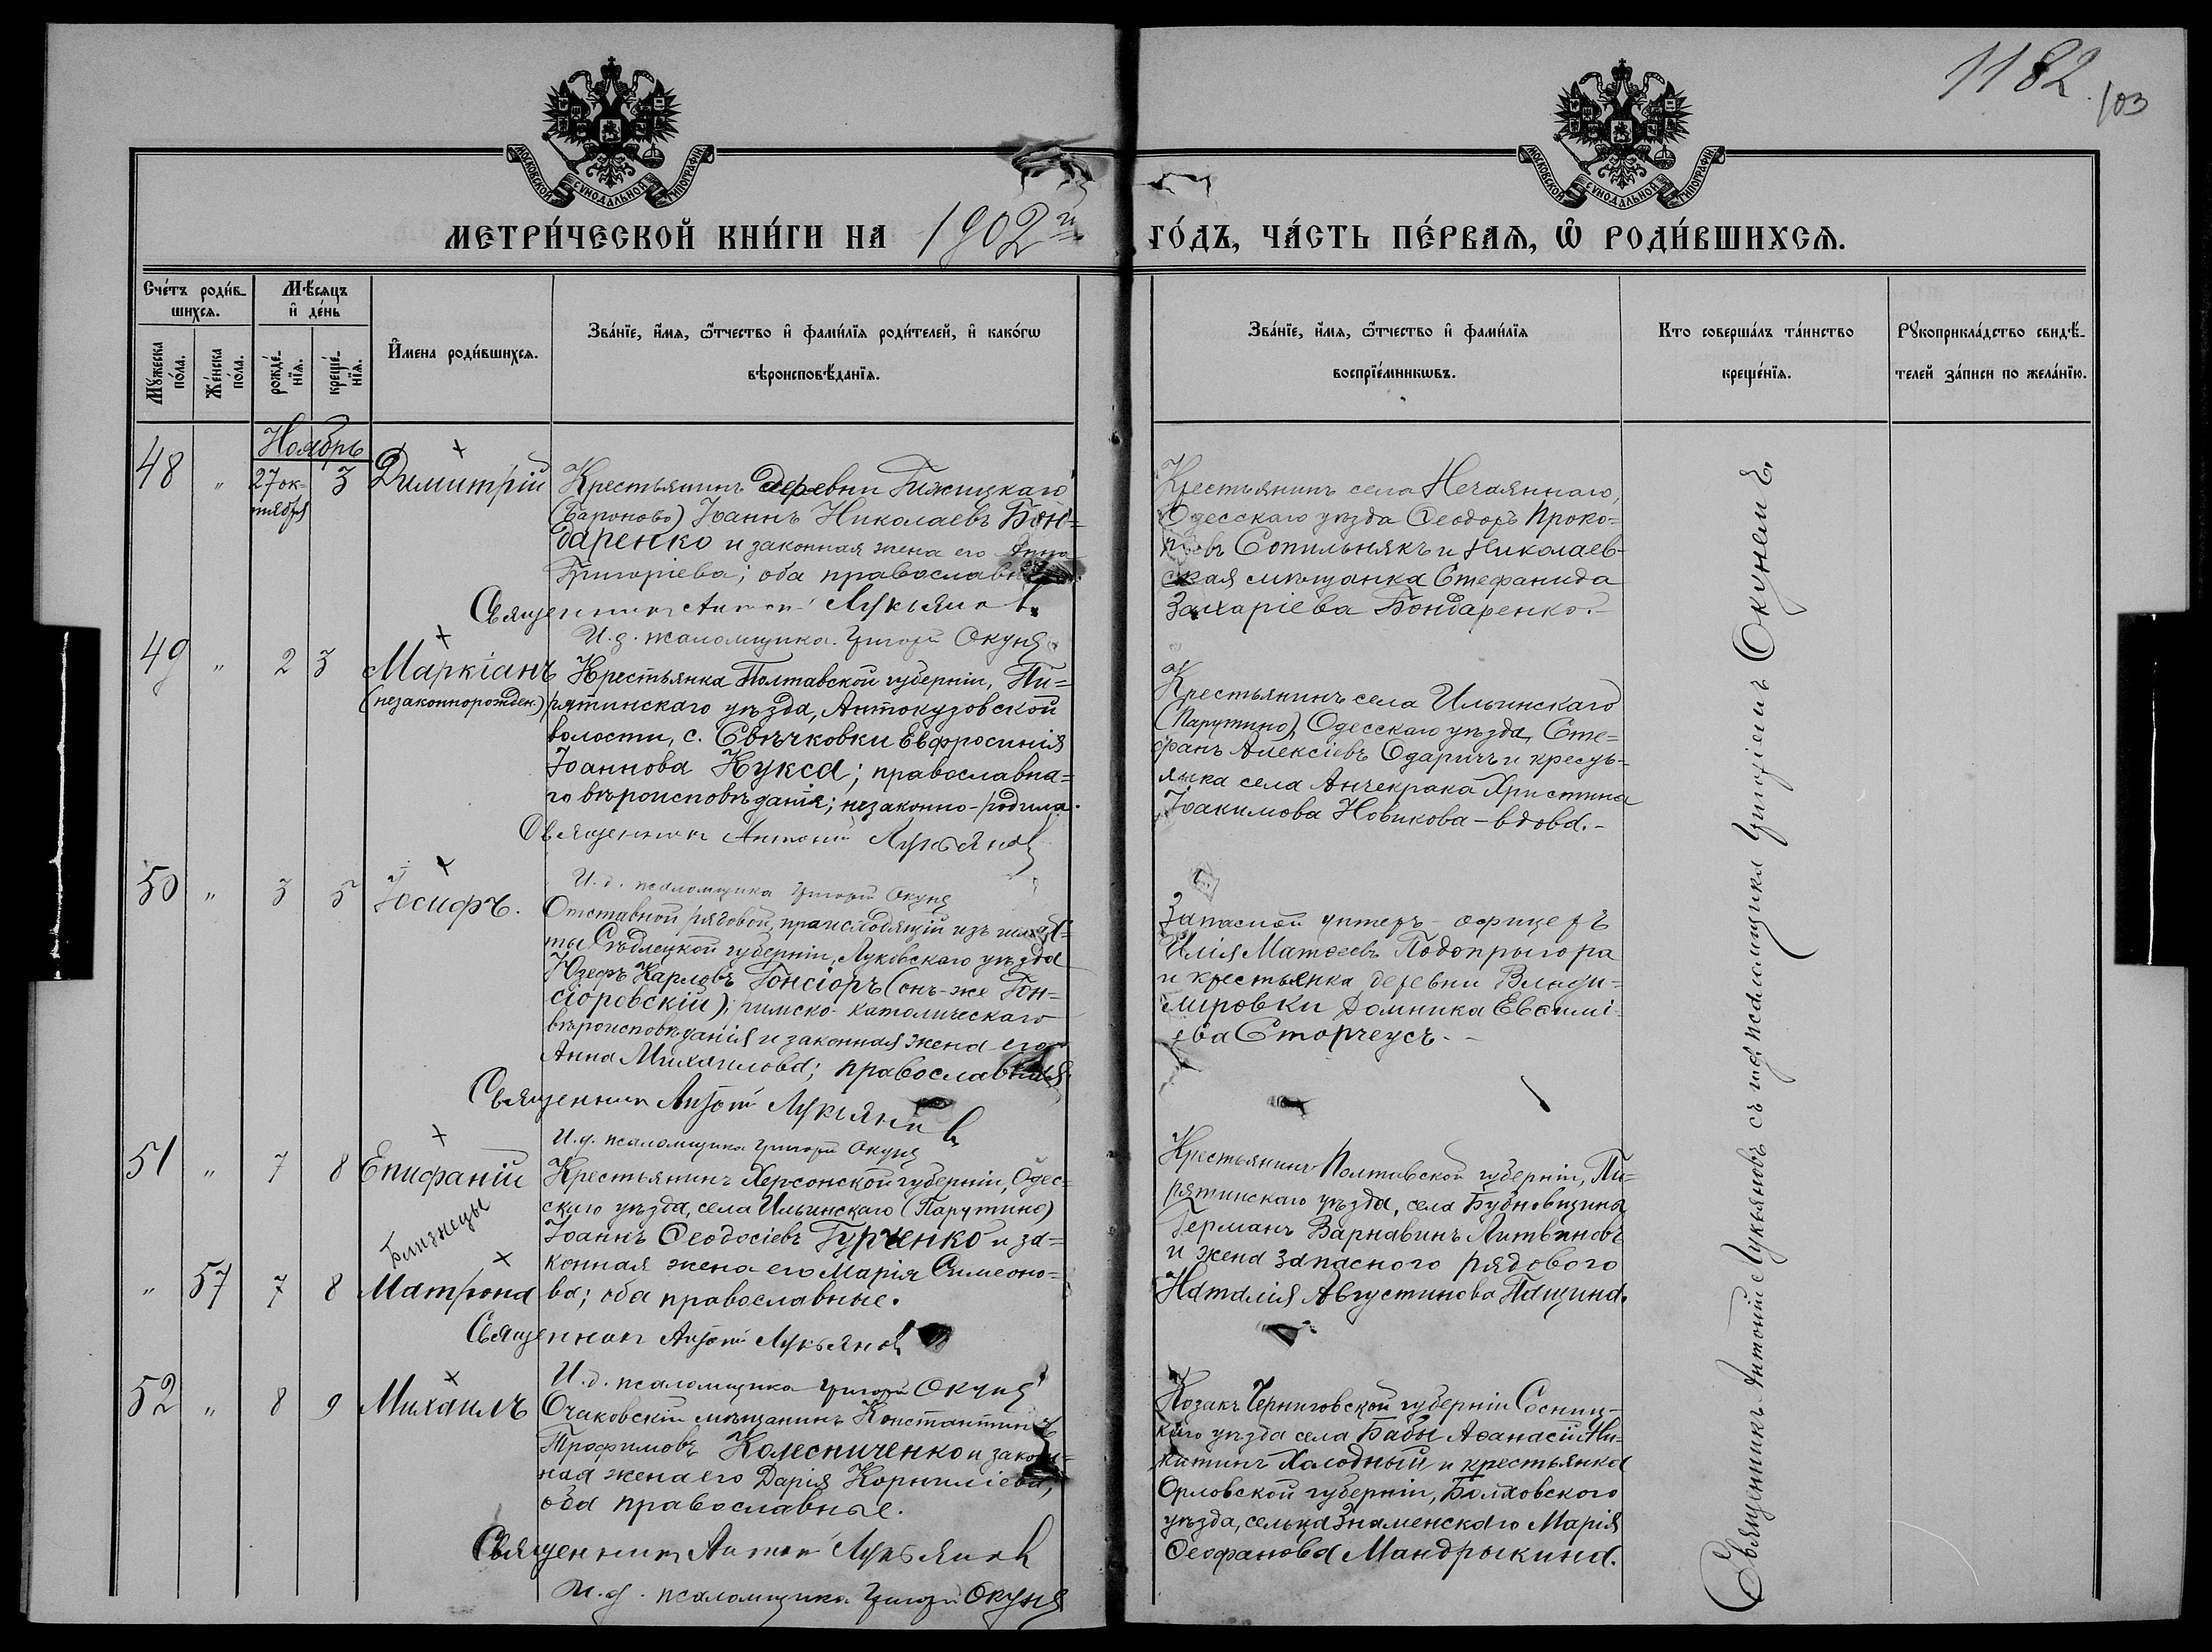 1182
103
МОСКОВСКОЙ СѴНОДАЛЬНОЙ ТИПОГРАФІИ.
МОСКОВСКОЙ СѴНОДАЛЬНОЙ ТИПОГРАФІИ.
МЕТРИ́ЧЕСКОЙ КНИ́ГИ НА 1902 й
ГО́ДЪ, ЧА́СТЬ ПЕ́РВАѦ, Ѡ҆ РОДИ́ВШИХСѦ.
Сче́тъ роди́в-
шихсѧ.
Мѣ́сѧцъ
и҆ де́нь
Мꙋ́жеска
по́ла.
Же́нска
по́ла.
рожде́-
нїѧ.
креще́-
нїѧ.
И҆мена роди́вшихсѧ.
Зва́нїе, и҆́мѧ, ѻ҆́тчество и҆ фами́лїѧ роди́телей, и҆ како́гѡ
вѣроисповѣ́данїѧ.
Зва́нїе, и҆́мѧ, ѻ҆́тчество и҆ фами́лїѧ
воспрїе́мникѡвъ.
Кто соверша́лъ та́инство
креще́нїѧ.
Рꙋкоприкла́дство свидѣ́-
телей за́писи по жела́нїю.
Ноябрь
48 " 27 ок-
тября 3 Димитрій
Крестьянинъ деревни Гижицкаго
(Бароново) Іоаннъ Николаевъ Бон-
даренко и законная жена его Анна
Григоріева; оба православные.
Священникъ Антоній Лукьяновъ
И. д. псаломщика Григорій Окунь
Крестьянинъ села Нечаяннаго,
Одесскаго уѣзда Ѳеодоръ Проко-
піевъ Сопильнякъ и Николаев-
ская мѣщанка Стефанида
Захаріева Бондаренко.
49 " 2 3 Маркіанъ
(незаконнорожден.)
Крестьянка Полтавской губерніи, Пи-
рятинскаго уѣзда, Антокузовской
волости, с. Свѣчковки Евфросинія
Іоаннова Кукса; православна-
го вѣроисповѣданія; незаконно-родила.
Священникъ Антоній Лукьяновъ
И. д. псаломщика Григорій Окунь
Крестьянинъ села Ильинскаго
(Парутино), Одесскаго уѣзда, Сте-
фанъ Алексіевъ Одаричъ и кресть-
янка села Анчекрака Христина
Іоакимова Новикова - вдова.-
50 " 3 5 Іосифъ.
Отставной рядовой, происходящій изъ шлях-
ты Сѣдлецкой губерніи, Луковскаго уѣзда
Юзефъ Карловъ Гонсіоръ (онъ-же Гон-
сіоровскій); римско-католическаго
вѣроисповѣданія и законная жена его
Анна Михаилова; православная.
Священникъ Антоній Лукьяновъ
И. д. псаломщика Григорій Окунь
Запасной унтеръ-офицеръ
Илія Матѳеевъ Подопрыгора
и крестьянка деревни Влади-
міровки Домника Евѳимі-
ева Сторчеусъ.-
51 " 7 8 Епифаній
Близнецы
" 57 7 8 Матрона
Крестьянинъ Херсонской губерніи, Одес-
скаго уѣзда, села Ильинскаго (Парутино)
Іоаннъ Ѳеодосіевъ Гурченко и за-
конная жена его Марія Симеоно-
ва; оба православные.
Священникъ Антоній Лукьяновъ
И. д. псаломщика Григорій Окунь
Крестьянинъ Полтавской губерніи, Пи-
рятинскаго уѣзда, села Бубновщина
Германъ Варнавинъ Литвиновъ
и жена запасного рядового
Наталія Августинова Пащина.
52 " 8 9 Михаилъ
Очаковскій мѣщанинъ Константинъ
Трофимовъ Колесниченко и закон-
ная жена его Дарія Корниліева;
оба православные.
Священникъ Антоній Лукьяновъ
И. д. псаломщика Григорій Окунь
Козакъ Черниговской губерніи Сосниц-
каго уѣзда села Бабы Аѳанасій Ни-
китинъ Холодный и крестьянка
Орловской губерніи, Болховского
уѣзда, сельца Знаменскаго Марія
Ѳеофанова Мандрыкина.
Священникъ Антоній Лукьяновъ съ и. д. псаломщика Григоріемъ Окунемъ.